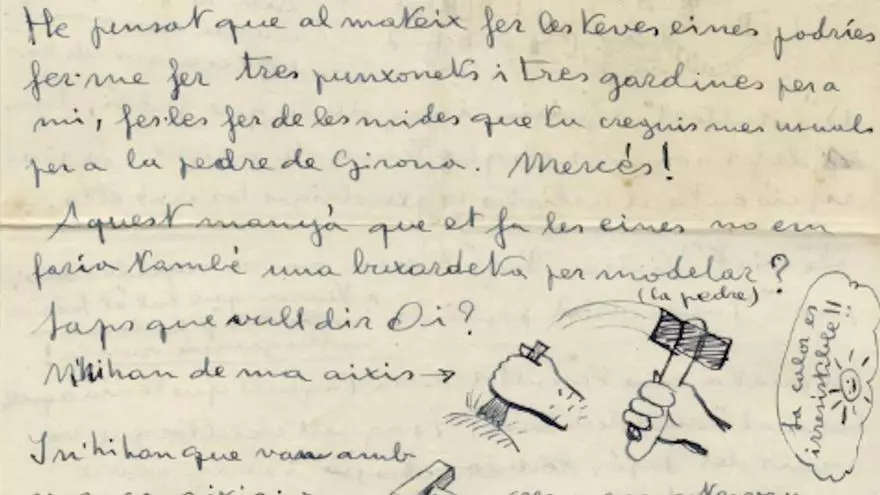 He pensat que al mateix fer les teves eines podries
fer-me fer tres punxonets i tres gardines per a
mi, fes-les fer de les mides que tu creguis mes usuals
per a la pedre de Girona. Mercés!
Aquest manyà que et fa les eines no em
faria també una buxardeta per modelar?
(la pedre)
Saps que vull dir Oi?
N'hi han de ma aixis →
I n'hi han que van amb
La calor es
irresistible!!